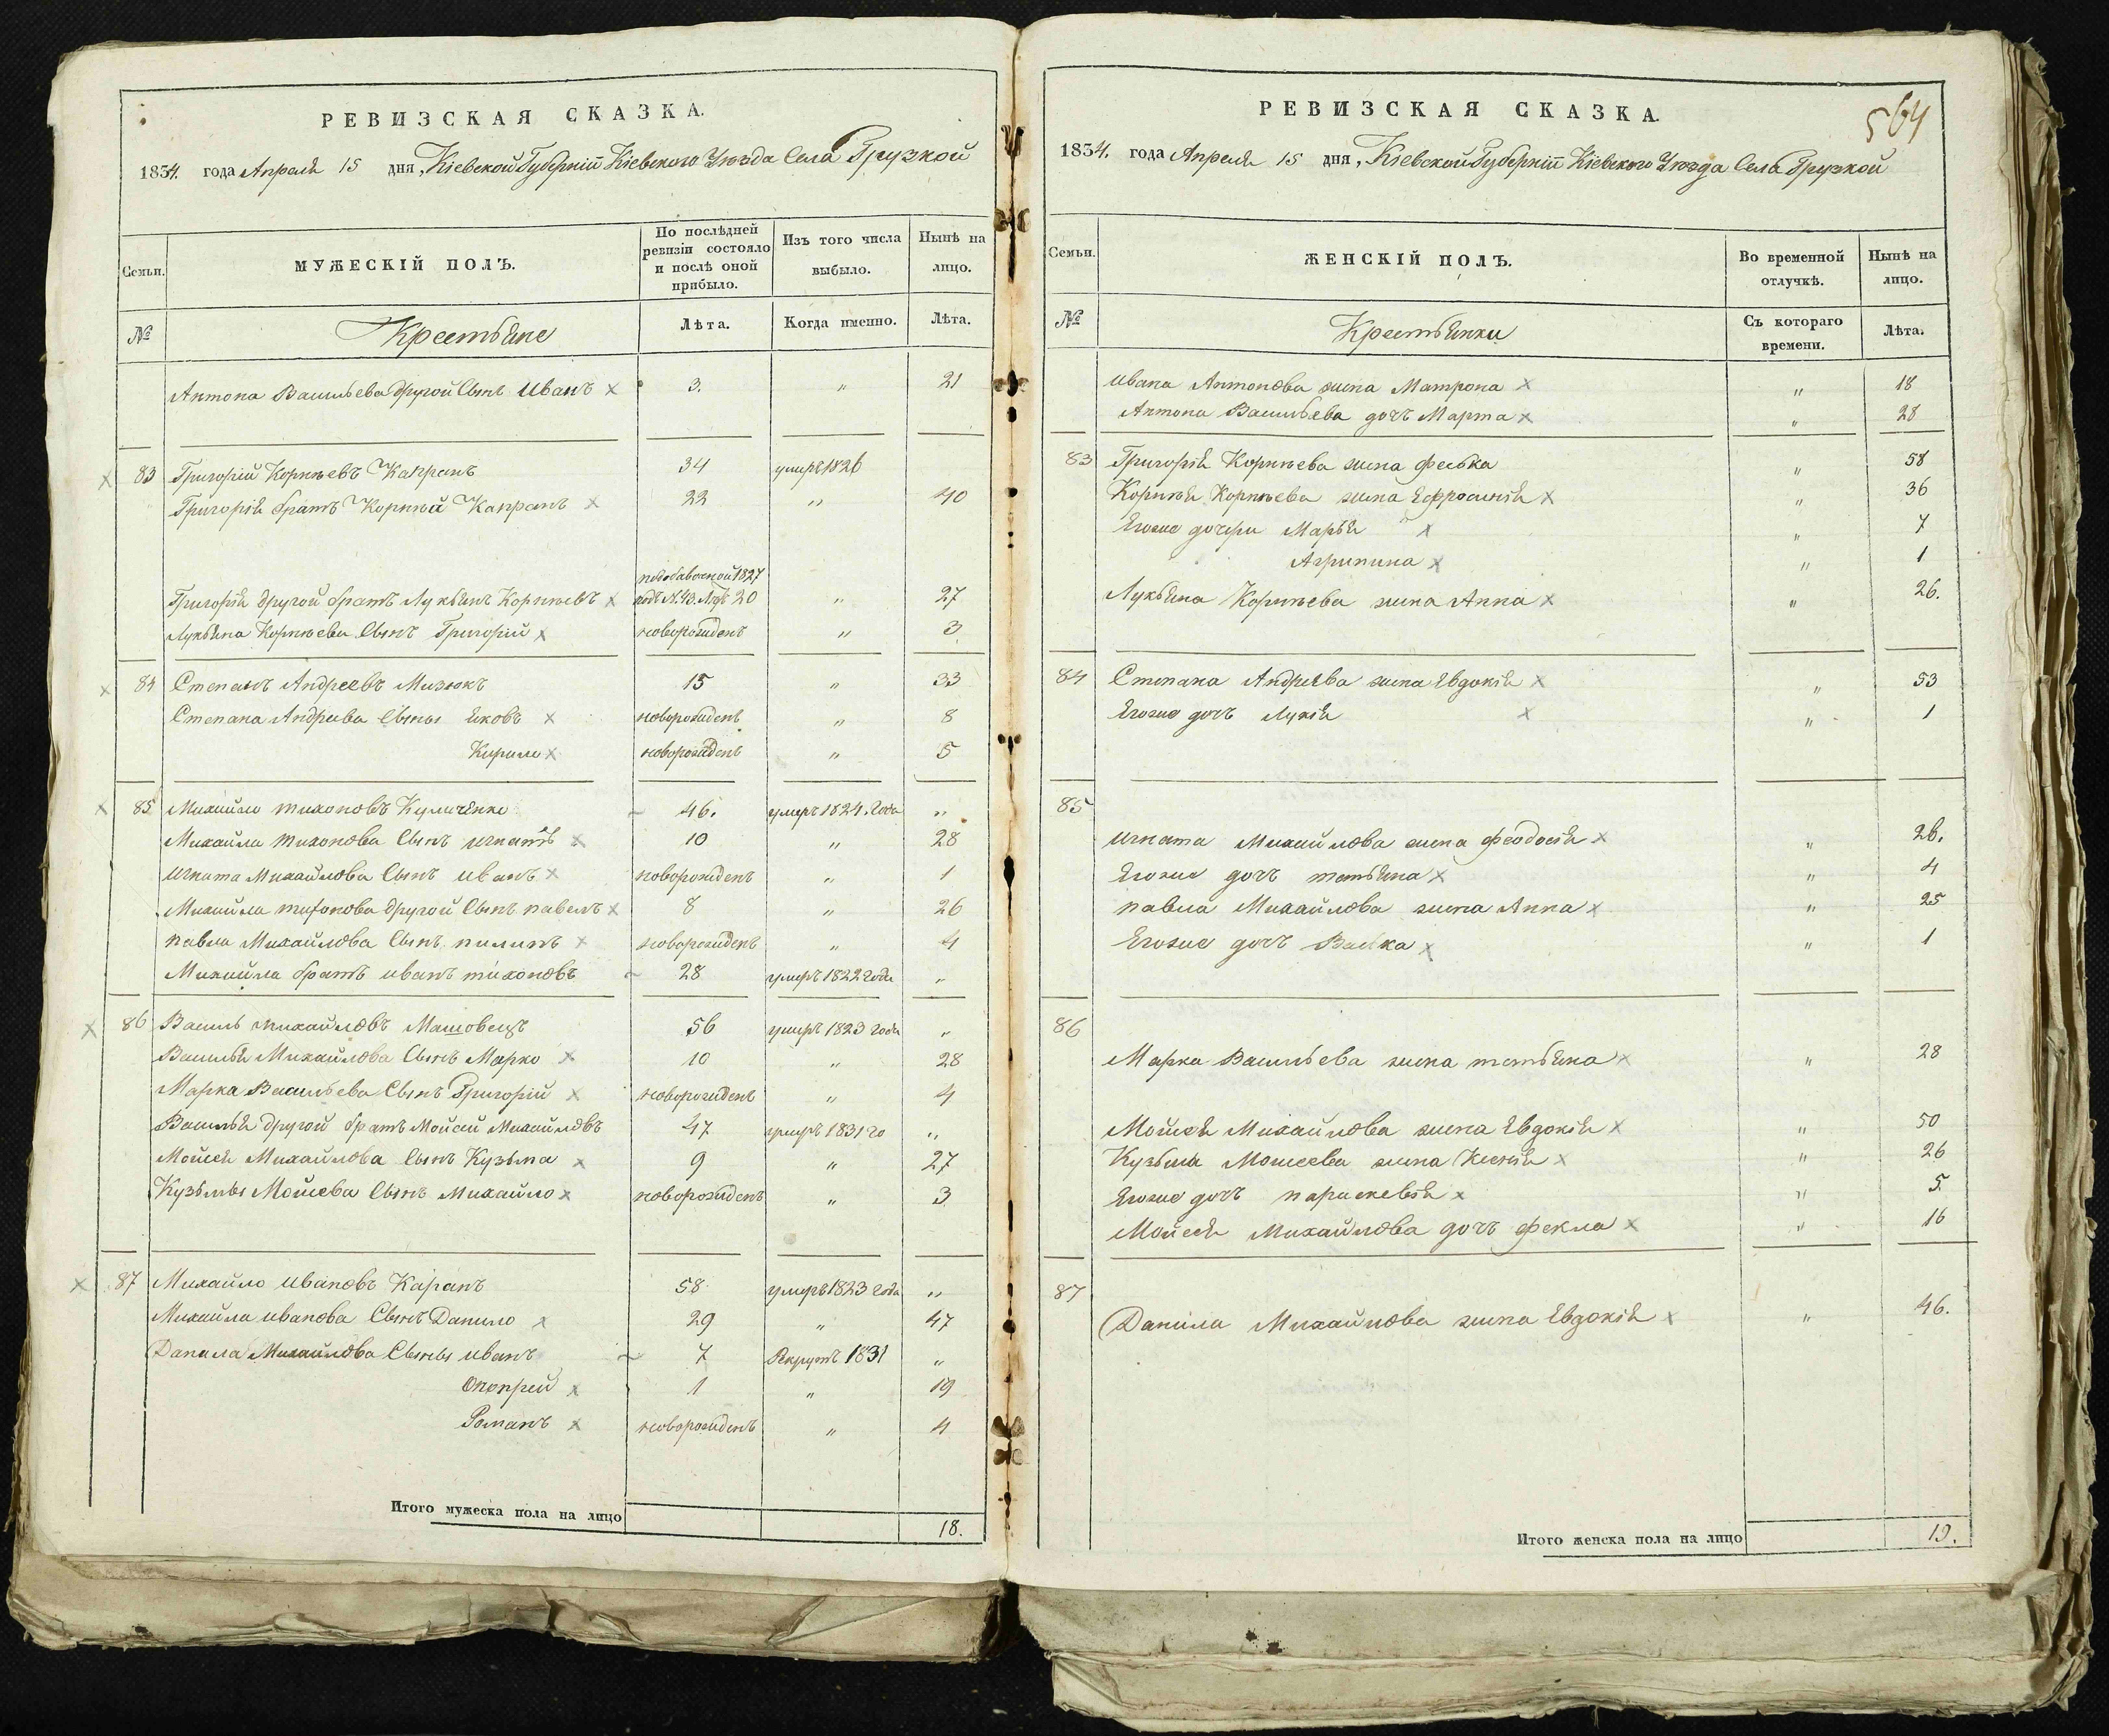 РЕВИЗСКАЯ СКАЗКА.
1834. года Апреля 15 дня, Кіевской Губерніи Кіевского Уезда Села Грузкой
Семьи.
МУЖЕСКІЙ ПОЛЪ.
По послѣдней ревизіи состояло и послѣ оной прибыло.
Изъ того числа выбыло.
Нынѣ на лицо.
№
Крестьяне
Лѣта.
Когда именно.
Лѣта.
Антона Васильева другой Сынъ Иванъ × 3. " 21
× 83 Григорій Корнѣевъ Капранъ 34 умеръ 1826
Григорія братъ Корнѣй Капранъ × 22 " 40
по добавочной 1827
Григорія другой братъ Лукьянъ Корнѣевъ × подъ №. 43. Лѣтъ 20 " 27
Лукьяна Корнѣева Сынъ Григорій × новорожденъ " 3
× 84 Степанъ Андреевъ Мизюкъ 15 " 33
Степана Андреева Сыны Яковъ × новорожденъ " 8
Кирило × новорожденъ " 5
× 85 Михайло тихоновъ 46. умеръ 1824. Года "
Михайла тихонова Сынъ игнатъ × 10 " 28
игната Михайлова Сынъ иванъ × новорожденъ " 1
Михайла тихонова другой Сынъ павелъ × 8 " 26
павла Михайлова Сынъ пилипъ × новорожденъ " 4
Михайла братъ иванъ тихоновъ 28 умеръ 1822 года "
× 86 Василь михайловъ Машовецъ 56 умеръ 1823 года "
Василья Михайлова Сынъ Марко × 10 " 28
Марка Васильева Сынъ Григорій × новорожденъ " 4
Василья другой братъ Мойсей Михайловъ 47 умеръ 1831 го "
Мойсея Михайлова Сынъ Кузьма × 9 " 27
Кузьмы Мойсева Сынъ Михайло × новорожденъ " 3.
× 87 Михайло ивановъ Каранъ 58 умеръ 1823 года "
Михайла иванова Сынъ Данило × 29 " 47
Данила Михайлова Сыны иванъ 7 Рекрутъ 1831 "
Онопрей × 1 " 19
Романъ × новорожденъ " 4
Итого мужеска пола на лицо 18.
564
РЕВИЗСКАЯ СКАЗКА.
1834. года Апреля 15 дня, Кіевской Губерніи Кіевского Уезда Села Грузкой
Семьи.
ЖЕНСКІЙ ПОЛЪ.
Во временной отлучкѣ.
Нынѣ на лицо.
№
Крестьянки
Съ котораго времени.
Лѣта.
ивана Антонова жена Матрона × " 18
Антона Васильева дочъ Марта × " 28
83 Григорія Корнѣева жена феська " 58
Корнѣя Корнѣева жена Ефросинія × " 36
Егоже дочери Марья × " 7
Агрипина × " 1
Лукьяна Корнѣева жена Анна × " 26.
84 Степана Андреева жена Евдокія × " 53
Егоже дочъ Лукія × " 1
85
игната Михайлова жена феодосія × " 26.
Егоже дочъ татьяна × " 4
павла Михайлова жена Анна × " 25
Егоже дочъ × " 1
86
Марка Васильева жена татьяна × " 28
Мойсея Михайлова жена Евдокія × " 50
Кузьмы Мойсеева жена Ксенія × " 26
Егоже дочъ параскевія × " 5.
Мойсея Михайлова дочъ фекла × " 16
87
Данила Михайлова жена Евдокія × " 46.
Итого женска пола на лицо 19.